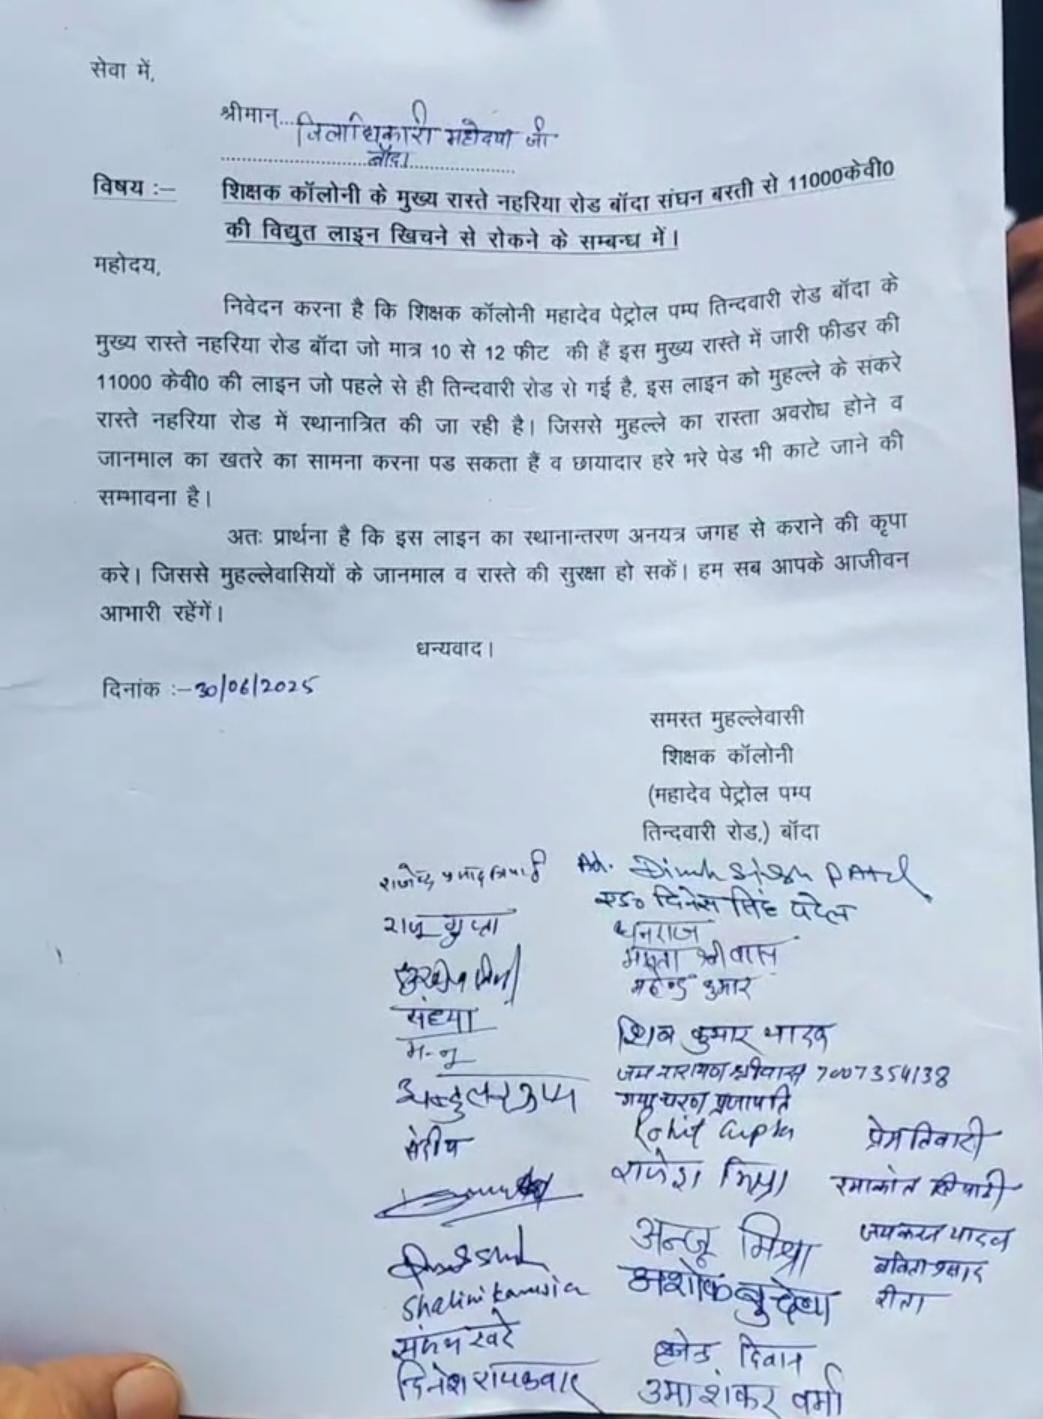 सेवा में,
श्रीमान्... जिलाधिकारी महोदया जी
बाँदा
विषय :– शिक्षक कॉलोनी के मुख्य रास्ते नहरिया रोड बॉदा संघन बस्ती से 11000केवी0
की विद्युत लाइन खिचने से रोकने के सम्बन्ध में।
महोदय,
निवेदन करना है कि शिक्षक कॉलोनी महादेव पेट्रोल पम्प तिन्दवारी रोड बॉदा के
मुख्य रास्ते नहरिया रोड बॉदा जो मात्र 10 से 12 फीट की हैं इस मुख्य रास्ते में जारी फीडर की
11000 केवी0 की लाइन जो पहले से ही तिन्दवारी रोड से गई है, इस लाइन को मुहल्ले के संकरे
रास्ते नहरिया रोड में स्थानात्रित की जा रही है। जिससे मुहल्ले का रास्ता अवरोध होने व
जानमाल का खतरे का सामना करना पड सकता हैं व छायादार हरे भरे पेड भी काटे जाने की
सम्भावना है।
अतः प्रार्थना है कि इस लाइन का स्थानान्तरण अनयत्र जगह से कराने की कृपा
करे। जिससे मुहल्लेवासियों के जानमाल व रास्ते की सुरक्षा हो सकें। हम सब आपके आजीवन
आभारी रहेंगें।
धन्यवाद।
दिनांक :– 30/06/2025
समस्त मुहल्लेवासी
शिक्षक कॉलोनी
(महादेव पेट्रोल पम्प
तिन्दवारी रोड,) बॉदा
राजेन्द्र प्रसाद त्रिपाठी
Ad. Dinesh Singh Patel
एड० दिनेस सिंह पटेल
राजू गुप्ता
धनराज
ममता श्रीवास
महेन्द्र कुमार
संध्या
शिव कुमार यादव
मन्नू
जय नारायण श्रीवास 7007354138
गया चरण प्रजापति
संदीप
Rohit Gupta
प्रेम तिवारी
राजेश मिश्रा
रमाकांत त्रिपाठी
अन्जू मिश्रा
जयकरन यादव
बबिता प्रसाद
Shalini
अशोक बुंदेला
रीता
संजय खरे
दिवान
दिनेश रायकवार
उमाशंकर वर्मा